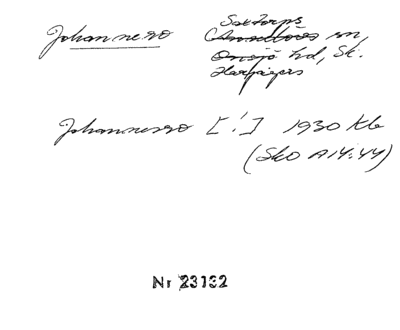 Johannesro Saxtorps
sn,
Onsjö hd, Sk.
Harjagers
Johannesro [!] 1930 Kb
(Sk0 A14:44)
Nr 23132